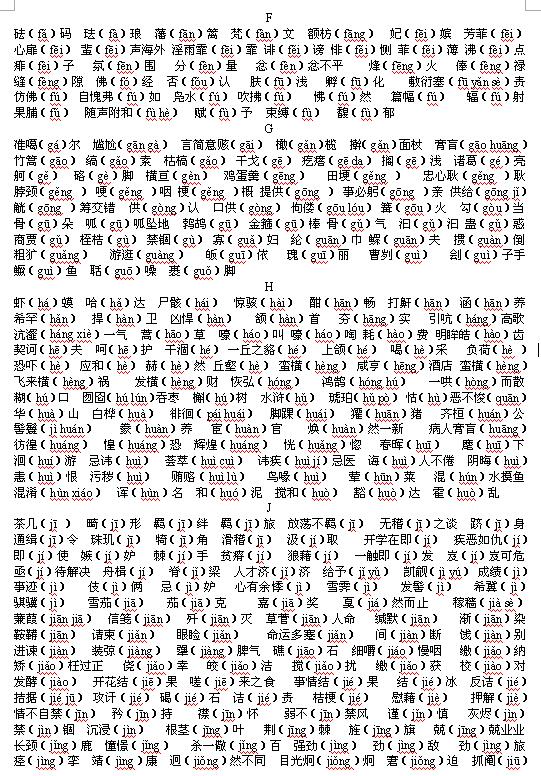 F
砝（fǎ）码 珐（fà）琅 藩（fān）篱 梵（fàn）文 额枋（fāng） 妃（fēi）嫔 芳菲（fēi）
心扉（fēi） 蜚（fēi）声海外 淫雨霏（fēi）霏 诽（fěi）谤 悱（fěi）恻 菲（fěi）薄 沸（fèi）点
痱（fèi）子 氛（fēn）围 分（fèn）量 忿（fèn）忿不平 烽（fēng）火 俸（fèng）禄
缝（fèng）隙 佛（fó）经 否（fǒu）认 肤（fū）浅 孵（fū）化 敷衍塞（fū yǎn sè）责
仿佛（fú） 自愧弗（fú）如 凫水（fú） 吹拂（fú） 怫（fú）然 篇幅（fú） 辐（fú）射
果脯（fǔ） 随声附和（fù hè） 赋（fù）予 束缚（fù） 馥（fù）郁
G
准噶（gá）尔 尴尬（gān gà） 言简意赅（gāi） 橄（gǎn）榄 擀（gǎn）面杖 膏肓（gāo huāng）
竹篙（gāo） 缟（gǎo）素 枯槁（gǎo） 干戈（gē） 疙瘩（gē da） 搁（gē）浅 诸葛（gě）亮
舸（gě） 硌（gè）脚 横亘（gèn） 鸡蛋羹（gēng） 田埂（gěng） 忠心耿（gěng）耿
脖颈（gěng） 哽（gěng）咽 梗（gěng）概 提供（gōng） 事必躬（gōng）亲 供给（gōng jǐ）
觥（gōng）筹交错 供（gòng）认 口供（gòng） 佝偻（gōu lóu） 篝（gōu）火 勾（gòu）当
骨（gū）朵 呱（gū）呱坠地 鹁鸪（gū） 金箍（gū）棒 骨（gǔ）气 汩（gǔ）汩 蛊（gǔ）惑
商贾（gǔ） 桎梏（gù） 禁锢（gù） 寡（guǎ）妇 纶（guān）巾 鳏（guān）夫 掼（guàn）倒
粗犷（guǎng） 游逛（guàng） 皈（guī）依 瑰（guī）丽 曹刿（guì） 刽（guì）子手
鳜（guì）鱼 聒（guō）噪 裹（guǒ）脚
H
虾（há）蟆 哈（hǎ）达 尸骸（hái） 惊骇（hài） 酣（hān）畅 打鼾（hān） 涵（hán）养
希罕（hǎn） 捍（hàn）卫 凶悍（hàn） 颔（hàn）首 夯（hāng）实 引吭（háng）高歌
沆瀣（hàng xiè）一气 蒿（hāo）草 嚎（háo）叫 嚎（háo）啕 耗（hào）费 明眸皓（hào）齿
契诃（hē）夫 呵（hē）护 干涸（hé） 一丘之貉（hé） 上颌（hé） 喝（hè）采 负荷（hè）
恐吓（hè） 应和（hè） 赫（hè）然 丘壑（hè） 蛮横（hèng） 咸亨（hēng）酒店 蛮横（hèng）
飞来横（hèng）祸 发横（hèng）财 恢弘（hóng） 鸿鹄（hóng hú） 一哄（hòng）而散
糊（hú）口 囫囵（hú lún）吞枣 槲（hú）树 水浒（hǔ） 琥珀（hǔ pò） 怙（hù）恶不悛（quān）
华（huà）山 白桦（huà） 徘徊（pái huái） 脚踝（huái） 獾（huān）猪 齐桓（huán）公
警鬟（jì huán） 豢（huàn）养 宦（huàn）官 焕（huàn）然一新 病入膏肓（huāng）
彷徨（huáng） 惶（huáng）恐 辉煌（huáng） 恍（huǎng）惚 春晖（huī） 麾（huī）下
洄（huí）游 忌讳（huì） 荟萃（huì cuì） 讳疾（huì jí）忌医 诲（huì）人不倦 阴晦（huì）
恚（huì）恨 污秽（huì） 贿赂（huì lù） 鸟喙（huì） 荤（hūn）菜 混（hún）水摸鱼
混淆（hùn xiáo） 诨（hùn）名 和（huó）泥 搅和（huò） 豁（huò）达 霍（huò）乱
J
茶几（jī） 畸（jī）形 羁（jī）绊 羁（jī）旅 放荡不羁（jī） 无稽（jī）之谈 跻（jī）身
通缉（jī）令 珠玑（jī） 犄（jī）角 滑稽（jī） 汲（jí）取 开学在即（jí） 疾恶如仇（jí）
即（jí）使 嫉（jí）妒 棘（jí）手 贫瘠（jí） 狼藉（jí） 一触即（jí）发 岌（jí）岌可危
亟（jí）待解决 舟楫（jí） 脊（jǐ）梁 人才济（jǐ）济 给予（jǐ yǔ） 觊觎（jì yú） 成绩（jì）
事迹（jì） 伎（jì）俩 忌（jì）妒 心有余悸（jì） 雪霁（jì） 发髻（jì） 希冀（jì）
骐骥（jì） 雪茄（jiā） 茄（jiā）克 嘉（jiā）奖 戛（jiá）然而止 稼穑（jià sè）
蒹葭（jiān jiā） 信笺（jiān） 歼（jiān）灭 草菅（jiān）人命 缄默（jiān） 渐（jiān）染
鞍鞯（jiān） 请柬（jiǎn） 眼睑（jiǎn） 命运多蹇（jiǎn） 间（jiàn）断 饯（jiàn）别
进谏（jiàn） 装弶（jiàng） 犟（jiàng）脾气 礁（jiāo）石 细嚼（jiáo）慢咽 缴（jiǎo）纳
矫（jiǎo）枉过正 侥（jiǎo）幸 皎（jiǎo）洁 搅（jiǎo）扰 缴（jiǎo）获 校（jiào）对
发酵（jiào） 开花结（jiē）果 嗟（jiē）来之食 事情结（jié）果 结（jié）冰 反诘（jié）
拮据（jié jū） 攻讦（jié） 碣（jié）石 诘（jié）责 桔梗（jié） 慰藉（jiè） 押解（jiè）
情不自禁（jīn） 矜（jīn）持 襟（jīn）怀 弱不（jīn）禁风 谨（jǐn）慎 灰烬（jìn）
禁（jìn）锢 沉浸（jìn） 根茎（jīng）叶 荆（jīng）棘 旌（jīng）旗 兢（jīng）兢业业
长颈（jǐng）鹿 憧憬（jǐng） 杀一儆（jǐng）百 强劲（jìng） 劲（jìng）敌 劲（jìng）旅
痉（jìng）挛 靖（jìng）康 迥（jiǒng）然不同 目光炯（jiǒng）炯 窘（jiǒng）迫 抓阄（jiū）